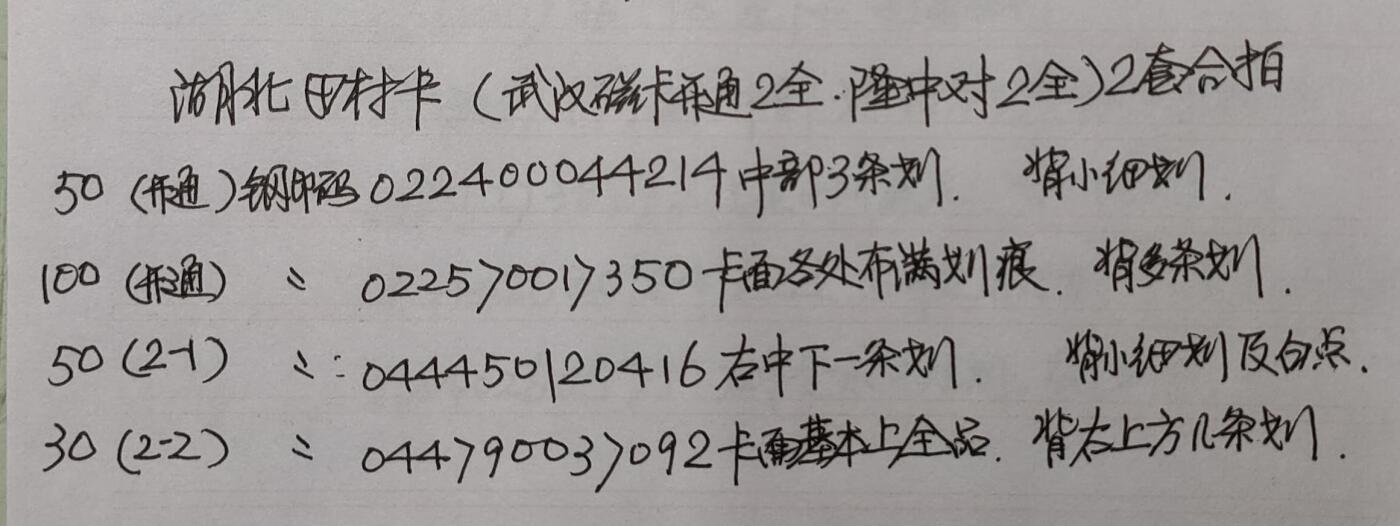 湖北田村卡（武汉磁卡开通2全.隆中对2全）2套合拍
50（开通）钢印码022400044214中部3条划. 背小细划.
100（开通） 〃 022570017350卡面各处布满划痕. 背多条划.
50（2-1） 〃: 044450120416右中下一条划. 背小细划及白点.
30（2-2） 〃 044790037092卡面基本上全品. 背右上方几条划.